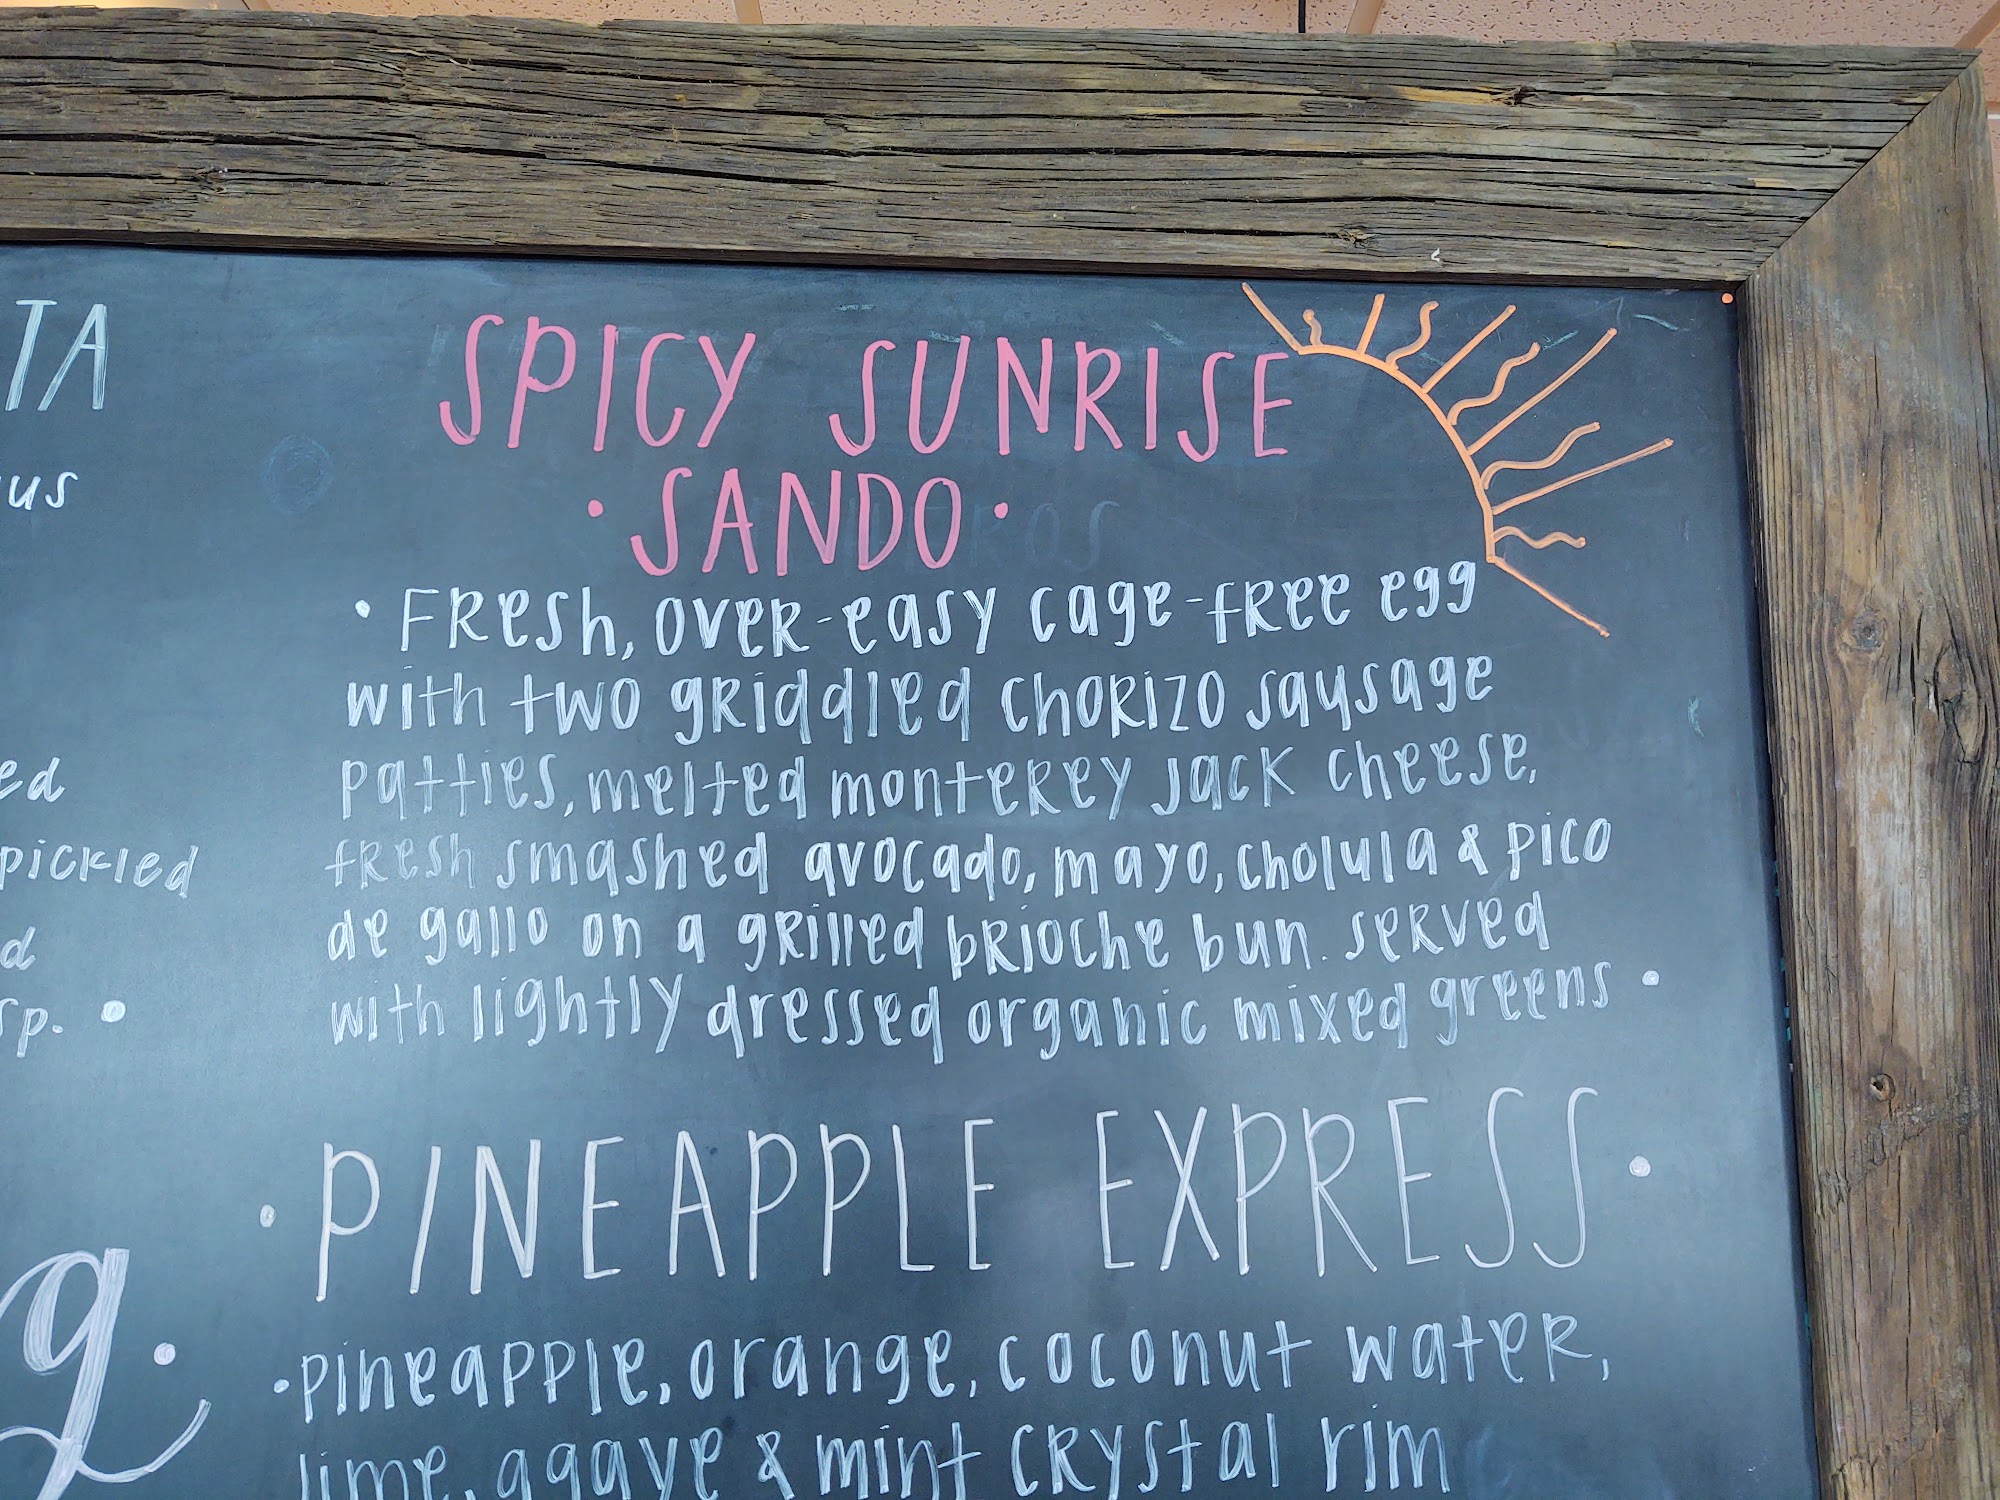 TA
SPICY SUNRISE
• SANDO •
• Fresh, over-easy cage-free egg
with two griddled chorizo sausage
patties, melted monterey jack cheese,
fresh smashed avocado, mayo, cholula & pico
de gallo on a grilled brioche bun. served
with lightly dressed organic mixed greens •
us
ed
pickled
d
sp. •
• PINEAPPLE EXPRESS •
• pineapple, orange, coconut water,
lime, agave & mint crystal rim
g •